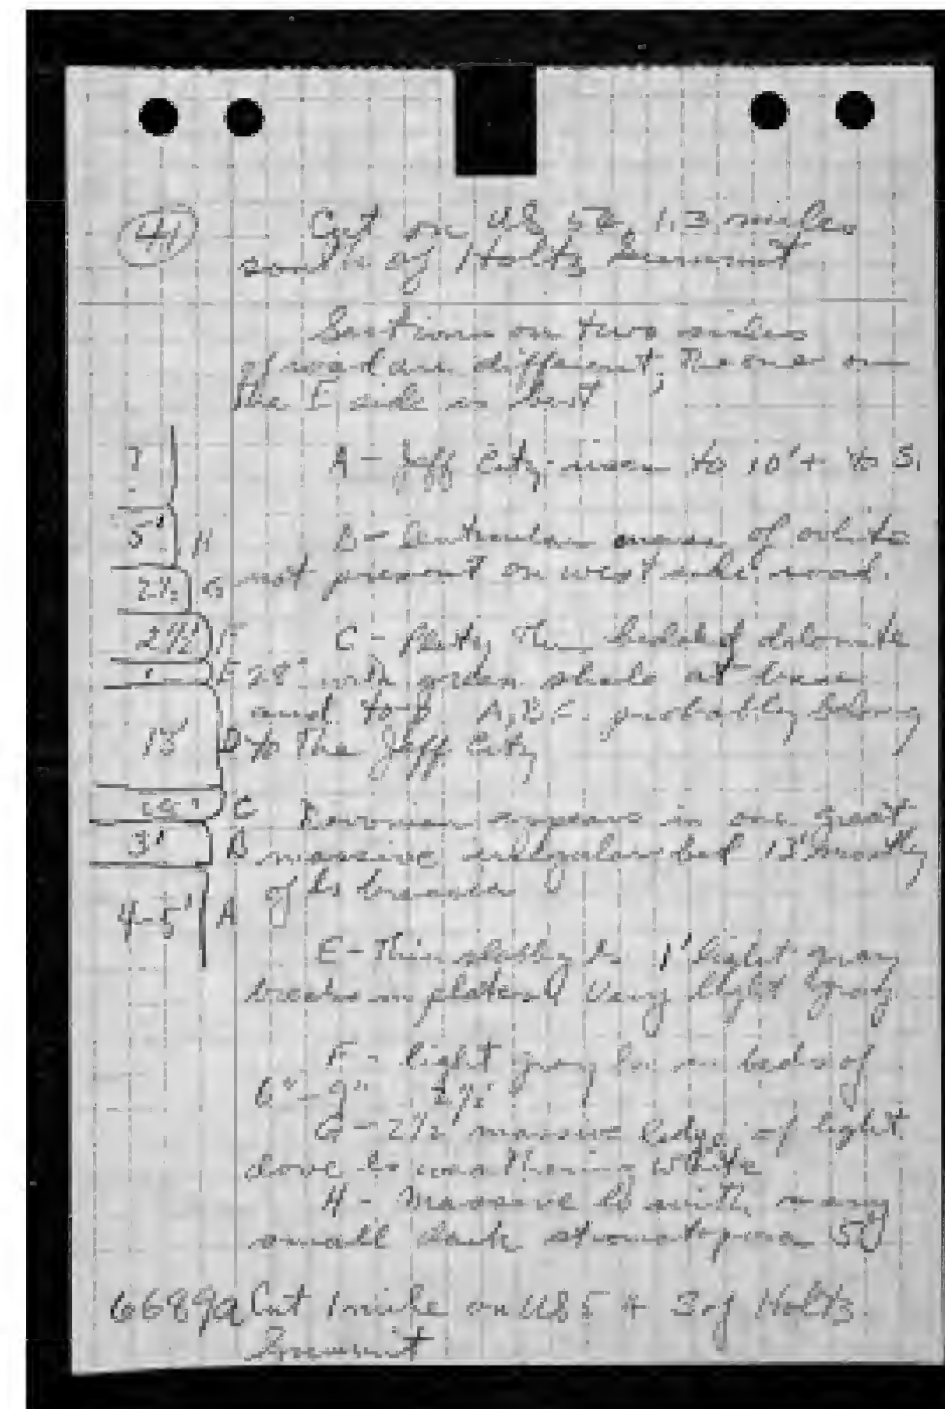 41
Cut on US 54, 1.3 miles
south of Holts Summit
Sections on two sides
of road are different, the one on
the E side is best
A - Jeff City: rises to 10'+ to S.
B - Lenticular mass of oolite
not present on west side road.
C - Platy thin bedded dolomite
28" with green shale at base
and top A, B, C. probably belong
to the Jeff City
appears in one great
massive irregular bed 13' mostly
of ls breccia
E - Thin slabby ls 1' light gray
breaks in plates. Very light gray
F - light gray ls in beds of
6"-9" 2 1/2'
G - 2 1/2' massive ledge of light
dove ls weathering white
H - Massive ls with many
small dark stromatopora 5'
6689a Cut 1 mile on US 54 S of Holts
Summit
?
5' H
2 1/2 G
2 1/2 F
1 E
13' D
28" C
3' B
4-5' A